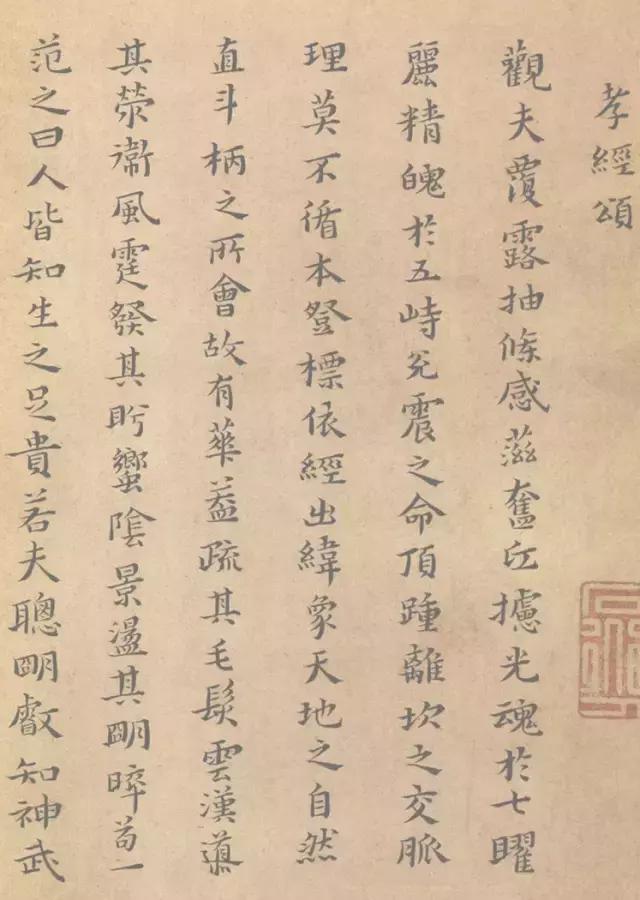 孝經頌
觀夫覆露抽條感滋奮丘攄光魂於七曜
麗精魄於五峙兌震之命頂踵離坎之交脈
理莫不循本登標依經出緯象天地之自然
直斗柄之所會故有華蓋疏其毛髮雲漢導
其滎衛風霆發其肹蠁陰景盪其明晬苟一
范之曰人皆知生之足貴若夫聰明叡知神武